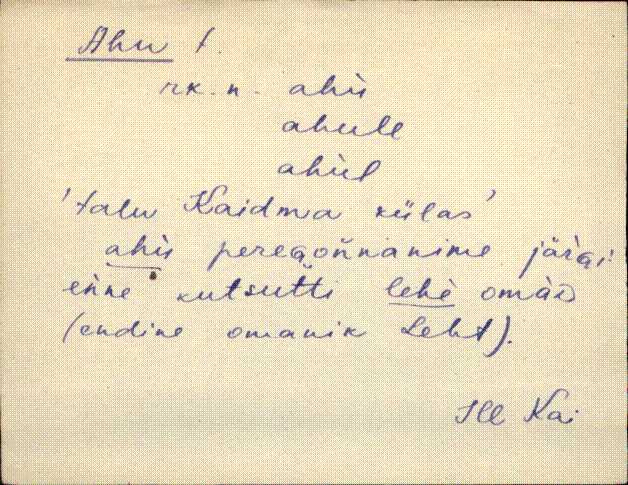 Ahu t.
rk. n. ahii
ahule
ahul
'talu Kaidma külas'
ahii peregoññanime järgi
enne kutsutti lehe omäD
(endine omanik Leht).
Ill Kai